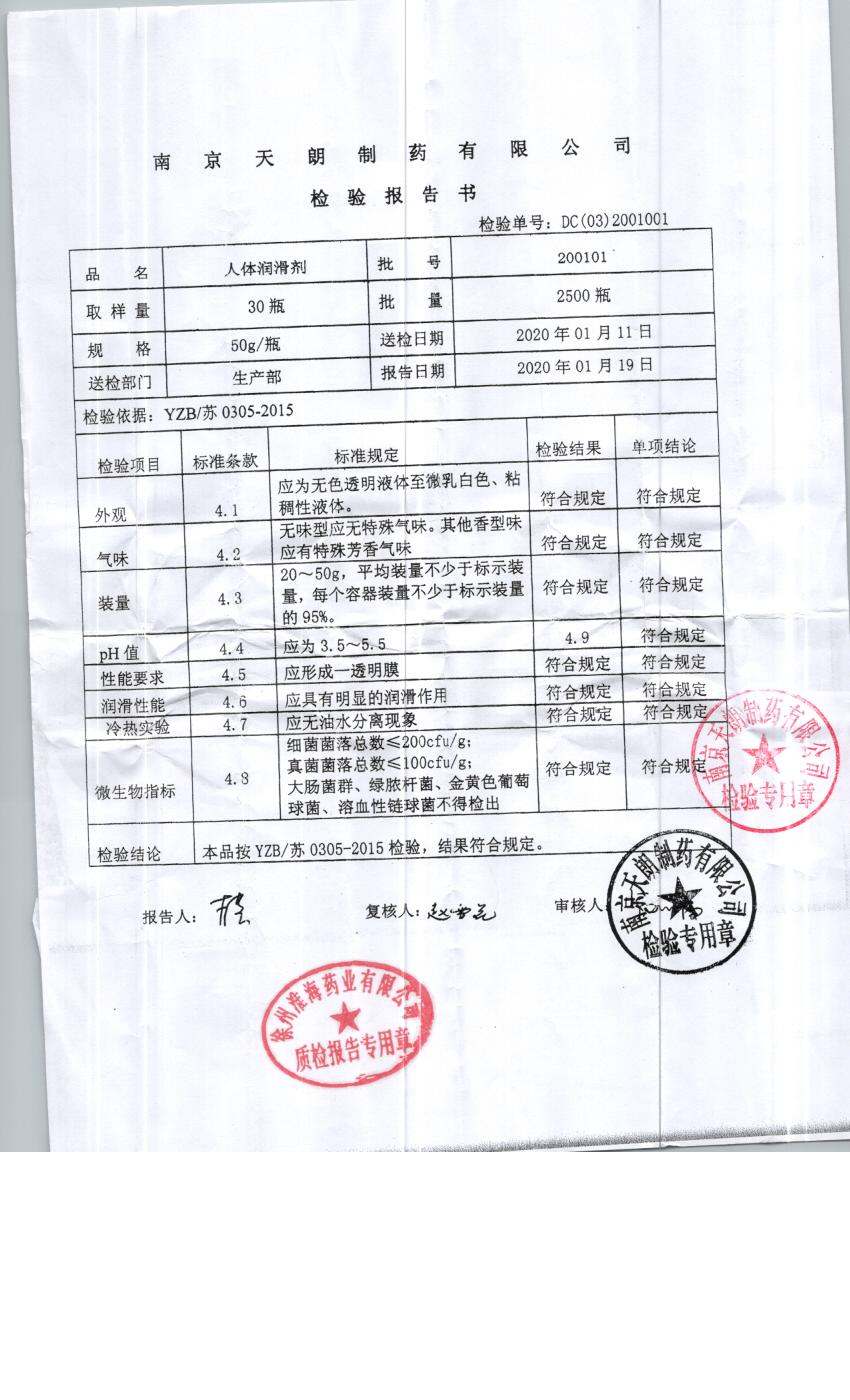 南京天朗制药有限公司
检验报告书
检验单号：DC(03)2001001
品名 人体润滑剂 批号 200101
取样量 30瓶 批量 2500瓶
规格 50g/瓶 送检日期 2020年01月11日
送检部门 生产部 报告日期 2020年01月19日
检验依据：YZB/苏 0305-2015
检验项目 标准条款 标准规定 检验结果 单项结论
外观 4.1 应为无色透明液体至微乳白色、粘
稠性液体。 符合规定 符合规定
气味 4.2 无味型应无特殊气味。其他香型味
应有特殊芳香气味 符合规定 符合规定
装量 4.3 20～50g，平均装量不少于标示装
量，每个容器装量不少于标示装量
的95%。 符合规定 符合规定
pH值 4.4 应为3.5～5.5 4.9 符合规定
性能要求 4.5 应形成一透明膜 符合规定 符合规定
润滑性能 4.6 应具有明显的润滑作用 符合规定 符合规定
冷热实验 4.7 应无油水分离现象 符合规定 符合规定
微生物指标 4.8 细菌菌落总数≤200cfu/g；
真菌菌落总数≤100cfu/g；
大肠菌群、绿脓杆菌、金黄色葡萄
球菌、溶血性链球菌不得检出 符合规定 符合规定
检验结论 本品按YZB/苏 0305-2015检验，结果符合规定。
报告人： 复核人： 审核人
南京天朗制药有限公司
检验专用章
南京天朗制药有限公司
检验专用章
徐州淮海药业有限公司
质检报告专用章